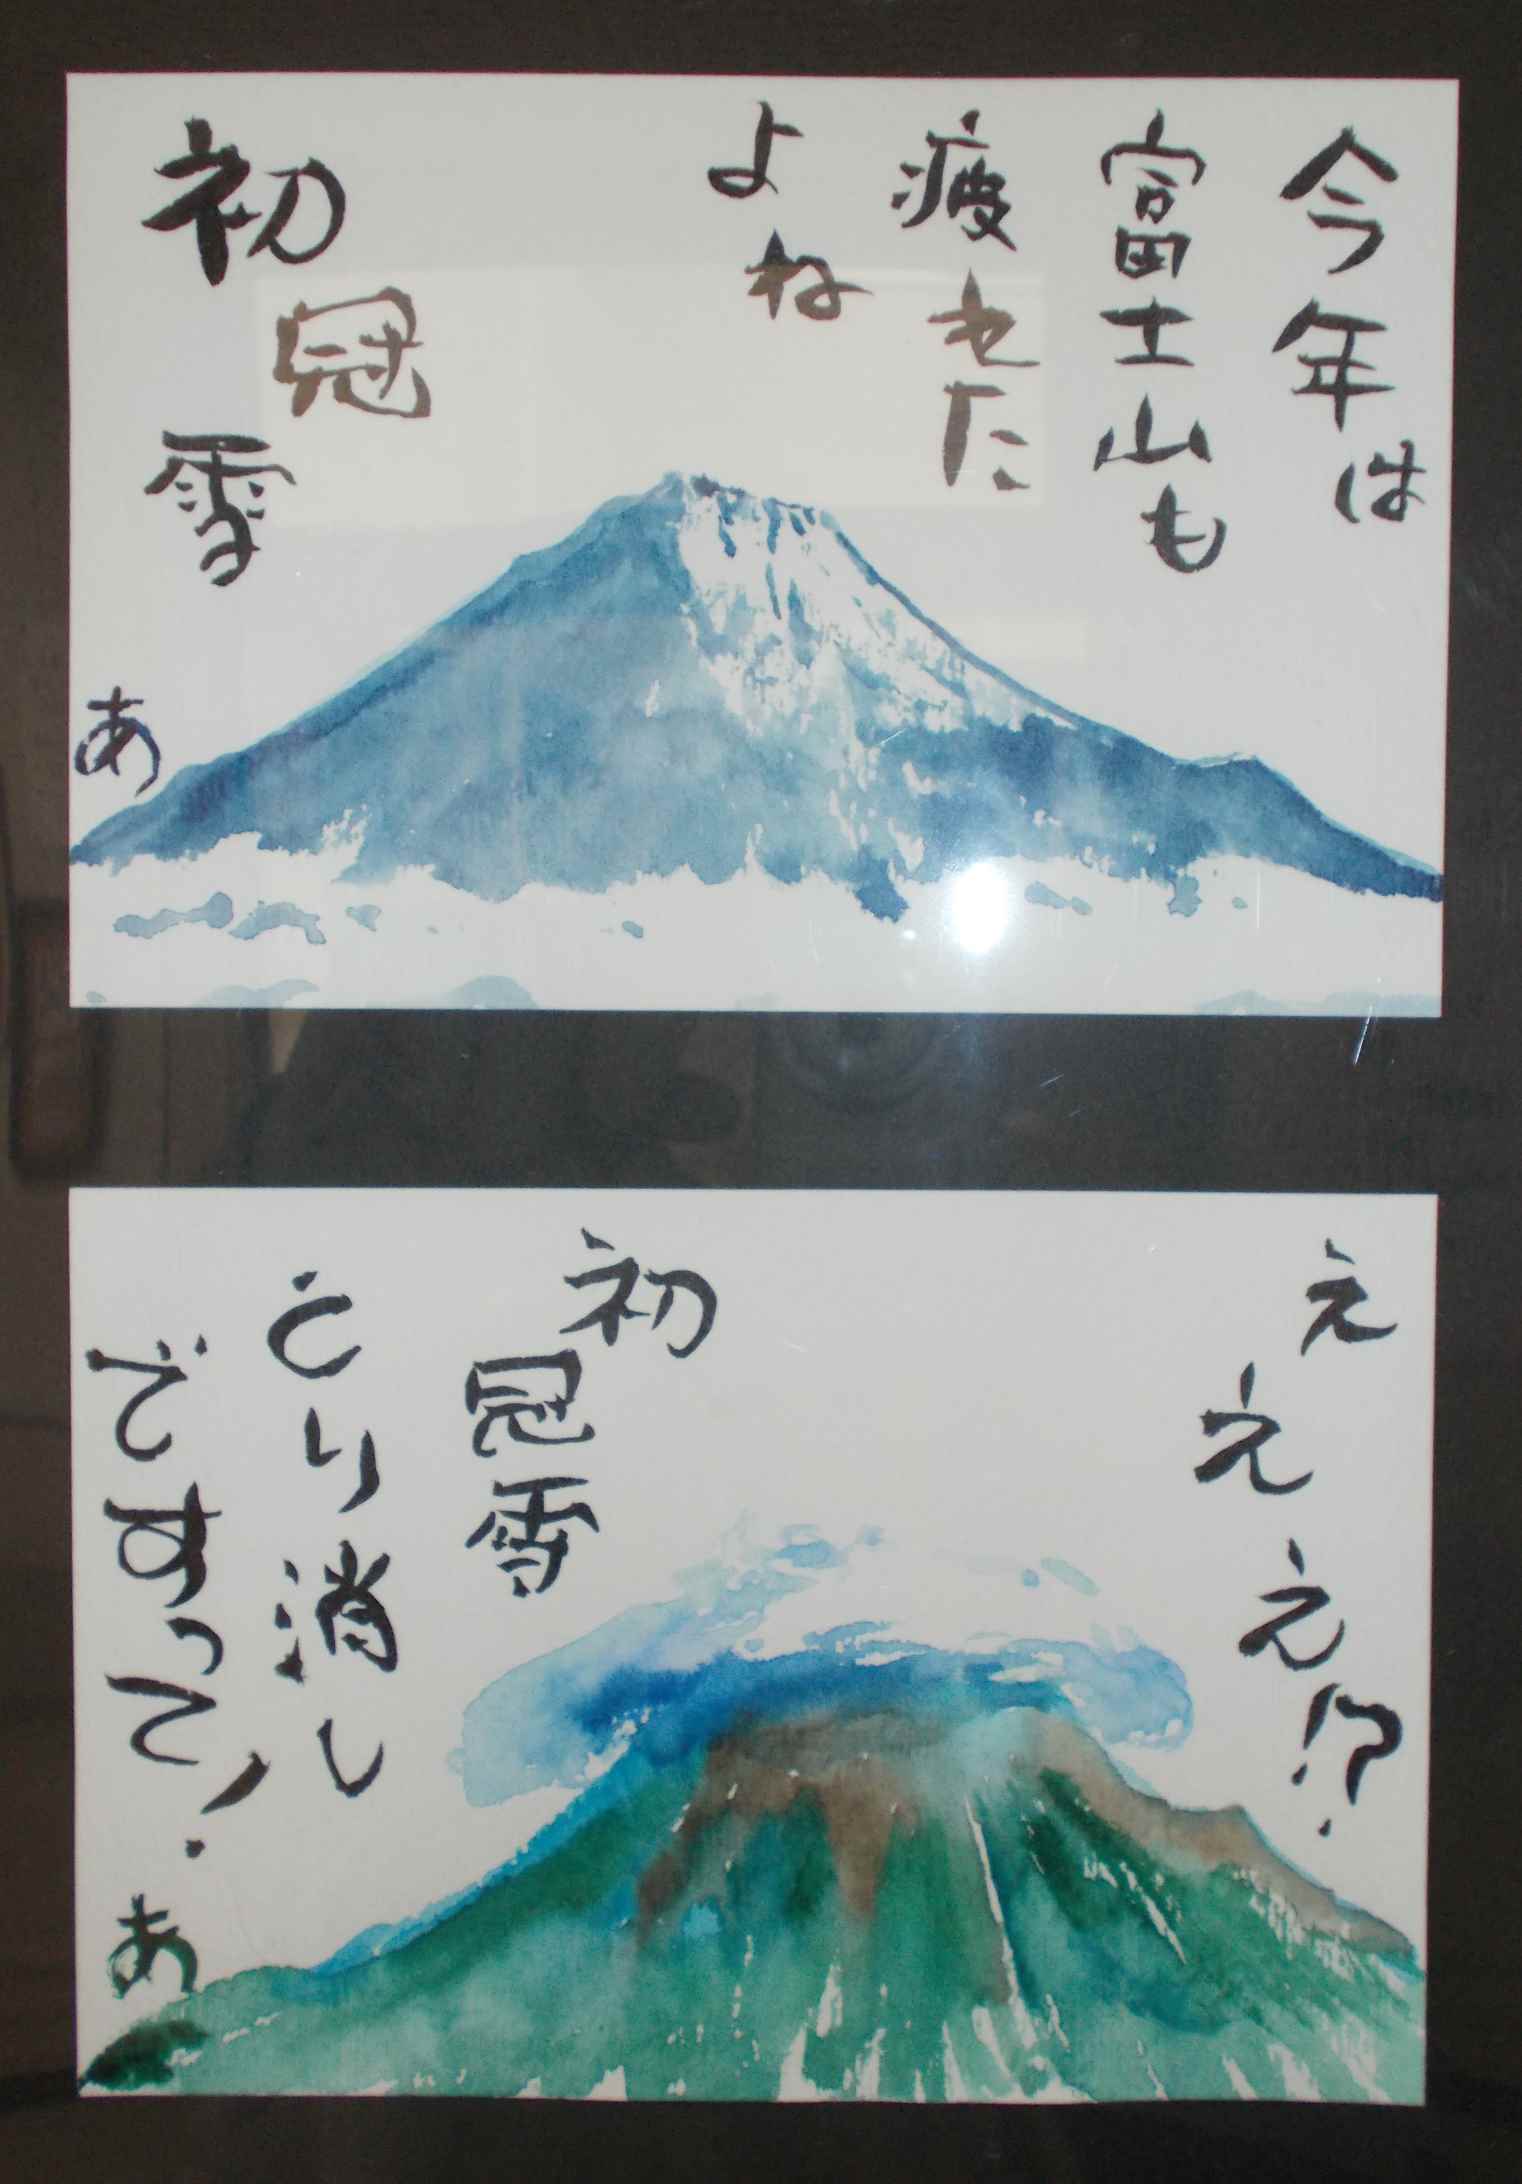 今年は
富士山も
疲れた
よね
初冠雪
あ
えええ!?
初冠雪
とり消し
ですって!
あ